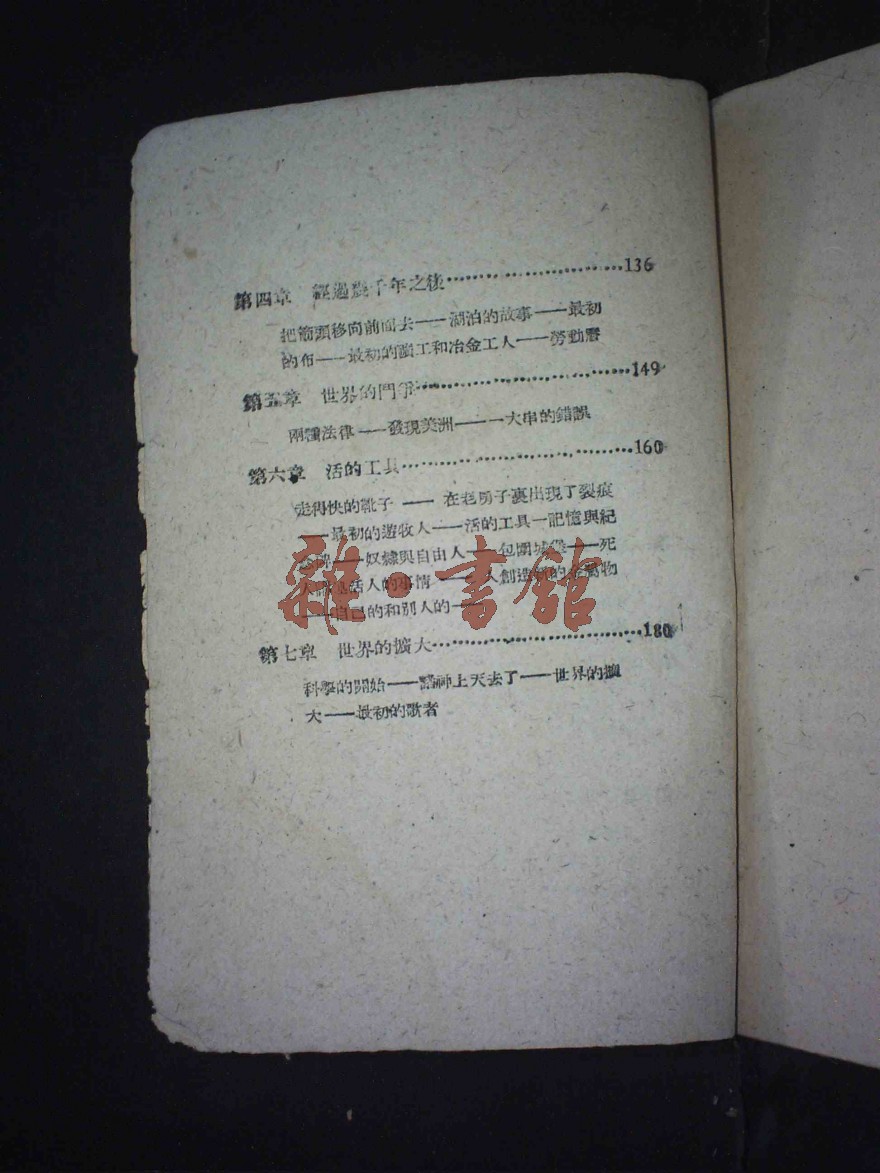 第四章 經過幾千年之後························136
把箭頭移向前面去——湖泊的故事——最初
的布——最初的礦工和冶金工人——勞動曆
第五章 世界的鬥爭························149
兩種法律——發現美洲——一大串的錯誤
第六章 活的工具························160
走得快的靴子——在老房子裏出現了裂痕
——最初的遊牧人——活的工具—記憶與紀
碑——奴隸與自由人——包圍城堡——死
活人的事情——人創造 物
——自己的和別人的——
第七章 世界的擴大························180
科學的開始——諸神上天去了——世界的擴
大——最初的歌者
雜·書館